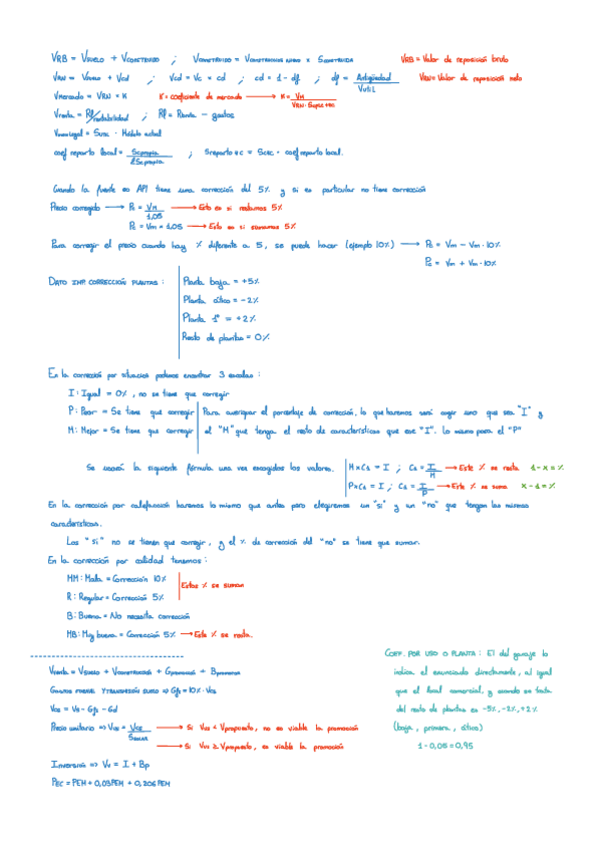 VRB = VSUELO + VCONSTRUIDO ; VCONSTRUIDO = VCONSTRUCCION NUEVO x SCONSTRUIDA VRB = Valor de reposición bruto
VRN = VSUELO + Vcd ; Vcd = Vc × cd ; cd = 1 - df ; df = Antigüedad / Vútil VRN = Valor de reposición neto
Vmercado = VRN × K K = coeficiente de mercado → K = VM /
Vrenta = RL/rentabilidad ; = Renta - gastos
= Sutil · Módulo actual
coef reparto local = Scpropia / ΣScpropia ; Sreparto ec = Scec · coef reparto local.
Cuando la fuente es API tiene una corrección del 5% y si es particular no tiene corrección
Precio corregido → Pc = VM / 1,05 → Esto es si restamos 5%
Pc = Vm × 1,05 → Esto es si sumamos 5%
Para corregir el precio cuando hay % diferente a 5, se puede hacer (ejemplo 10%) → Pc = Vm - Vm · 10%
Pc = Vm + Vm · 10%
DATO IMP. CORRECCIÓN PLANTAS : Planta baja = +5%
Planta ático = -2%
Planta 1ª = +2%
Resto de plantas = 0%
En la corrección por situación podemos encontrar 3 escalas :
I : Igual = 0% , no se tiene que corregir
P : Peor = Se tiene que corregir Para averiguar el porcentaje de corrección, lo que haremos será coger uno que sea "I" y
M : Mejor = Se tiene que corregir el "M" que tenga el resto de características que ese "I". Lo mismo para el "P"
Se usará la siguiente fórmula una vez escogidos los valores. M × Cs = I ; Cs = I / M → Este % se resta 1 - x = %
P × Cs = I ; Cs = I / P → Este % se suma x - 1 = %
En la corrección por calefacción haremos lo mismo que antes pero elegiremos un "si" y un "no" que tengan las mismas
características.
Los "si" no se tienen que corregir, y el % de corrección del "no" se tiene que sumar.
En la corrección por calidad tenemos :
MM : Mala = Corrección 10% Estos % se suman
R : Regular = Corrección 5%
B : Buena = No necesita corrección
MB : Muy buena = Corrección 5% → Este % se resta.
Vventa = VSUELO + VCONSTRUCCIÓN + GPROMOCIÓN + BPROMOTOR
GASTOS FORMAL Y TRANSMISIÓN SUELO ⇒ Gfs = 10% · Vos
Vos = Vs - Gfs - Gd
Precio unitario ⇒ Vos = Vos / → Si Vos < Vpropuesto, no es viable la promoción
→ Si Vos ≥ Vpropuesto, es viable la promoción
Inversión ⇒ Vv = I + Bp
PEC = PEM + 0,03PEM + 0,206PEM
COEF. POR USO O PLANTA : El del garaje lo
indica el enunciado directamente, al igual
que el local comercial, y cuando se trata
del resto de plantas es -5%, -2%, +2%
(baja, primera, ático)
1 - 0,05 = 0,95